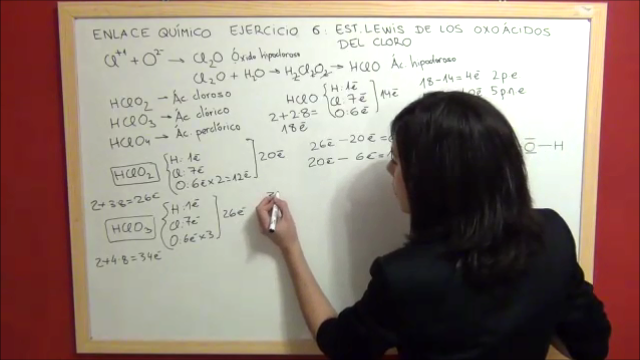 ENLACE QUÍMICO EJERCICIO 6: EST. LEWIS DE LOS OXOÁCIDOS
DEL CLORO
Cl⁺¹ + O²⁻ → Cl₂O Óxido hipocloroso
Cl₂O + H₂O → H₂Cl₂O₂ → HClO Ác hipocloroso
HClO₂ → Ác cloroso
HClO₃ → Ác clórico
HClO₄ → Ác. perclórico
HClO { H: 1e⁻
Cl: 7e⁻
O: 6e⁻
14e⁻
2+2·8=
18e⁻
18-14=4e⁻ 2pe
5pne
HClO₂ { H: 1e⁻
Cl: 7e⁻
O: 6e⁻x2=12e⁻
20e⁻
2+3·8=26e⁻
26e⁻-20e⁻=
20e⁻- 6e⁻=
O-H
HClO₃ { H: 1e⁻
Cl: 7e⁻
O: 6e⁻x3
26e⁻
2+4·8=34e⁻